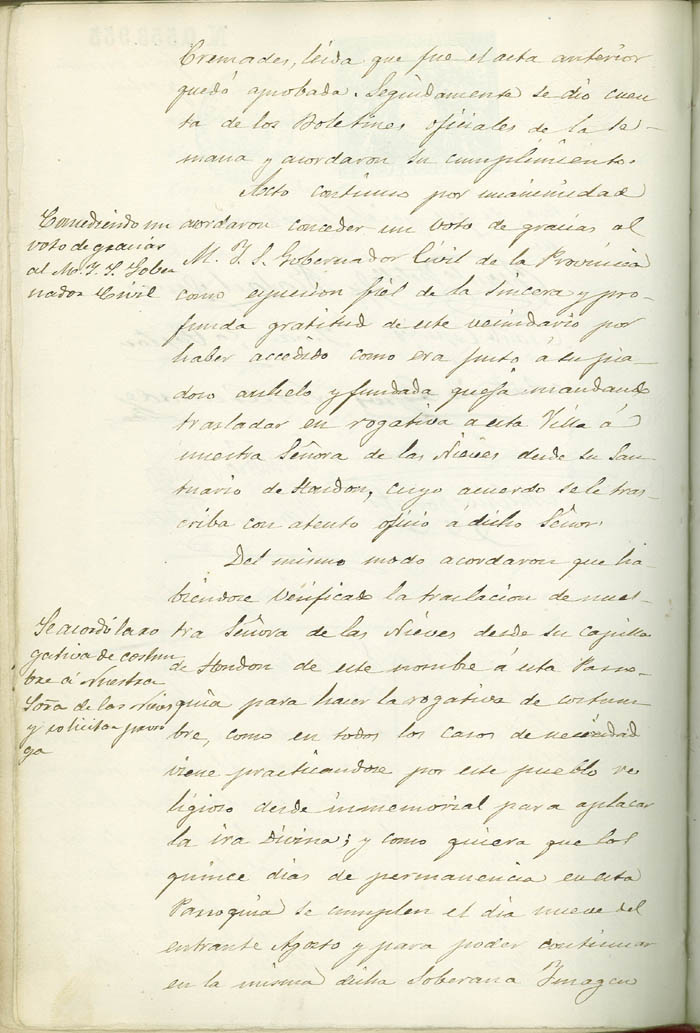 Cremades, leida que fue el acta anterior
quedó aprobada. Seguidamente se dió cuen
ta de los Boletines oficiales de la se-
mana y acordaron su cumplimiento.
Acto continuo por unanimidad
Concediendo un
voto de gracias
al M. Y. S. Gober
nador Civil
acordaron conceder un voto de gracias al
M. Y. S. Gobernador Civil de la Provincia
como espresion fiel de la sincera y pro-
funda gratitud de este vecindario por
haber accedido como era justo á su pia-
doso anhelo y fundada queja mandando
trasladar en rogativa a esta Villa á
nuestra Señora de las Nieves desde su San-
tuario de Hondon, cuyo acuerdo se le tras-
criba con atento oficio á dicho Señor.
Del mismo modo acordaron que ha-
biendose verificado la traslacion de nues-
Se acordó la ro
gativa de costum
bre á Nuestra
Sora de las Nieves
y solicitar prorro
ga
tra Señora de las Nieves desde su Capilla
de Hondon de este nombre á esta Parro-
quia para hacer la rogativa de costum
bre, como en todos los casos de necesidad
viene practicandose por este pueblo re
ligioso desde inmemorial para aplacar
la ira Divina; y como quiera que los
quince dias de permanencia en esta
Parroquia se cumplen el dia nueve del
entrante Agosto y para poder continuar
en la misma dicha Soberana Ymagen